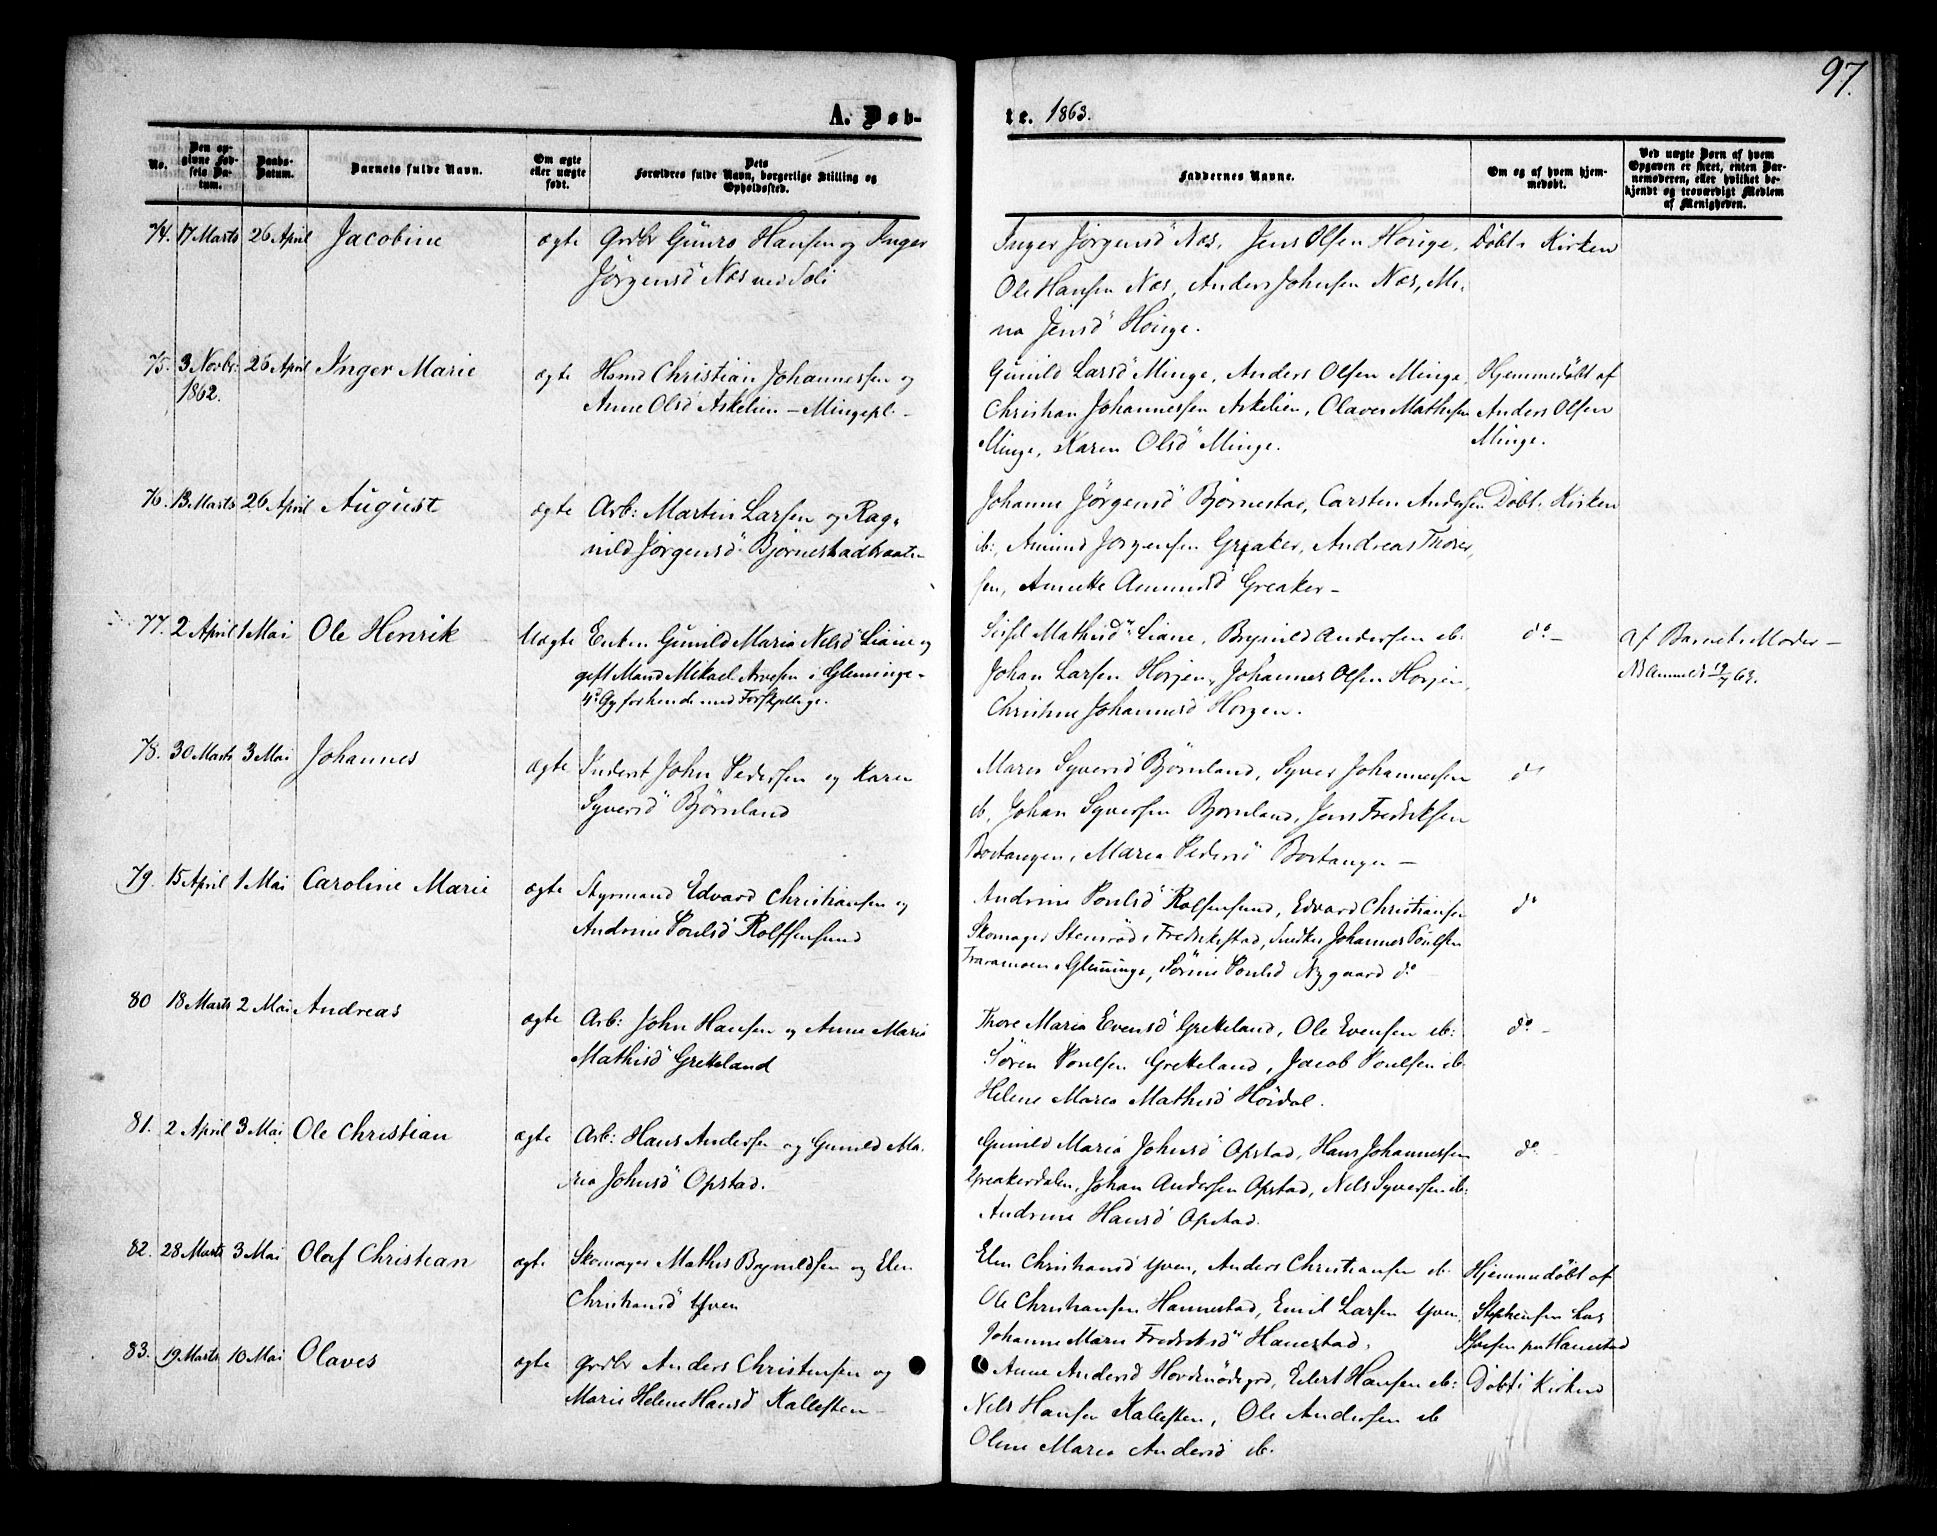 97.
A. Døb-
te. 1863.
No.
Den op-
givne Fød-
sels Da-
tum.
Daabs-
Datum.
Barnets fulde Navn.
Om ægte
eller uægte
født.
Dets
Forældres fulde Navn, borgerlige Stilling og
Opholdssted.
Faddernes Navne.
Om og af hvem hjem-
medøbt.
Ved uægte Børn af hvem
Opgaven er skeet, enten Bar-
nemoderen, eller hvilket be-
kjendt og troværdigt Medlem
af Menigheden.
74. 17 Marts 26 April Jacobine ægte Grdbr Gunro Hansen og Inger
Jørgensd Næs ved Soli
Inger Jørgensd Næs, Jens Olsen Houge,
Ole Hansen Næs, Anders Johnsen Næs, Mi-
na Jensd Houge.
Døbt i Kirken
75. 3 Novbr: 26 April Inger Marie ægte Hsmd Christian Johannessen og
1862. Anne Olsd Askelien – Mingepl. –
Gunild Larsd Minge, Anders Olsen Minge,
Christian Johannessen Askelien, Olaves Mathisen
Minge, Karen Olsd Minge.
Hjemmedøbt af
Anders Olsen
Minge.
76. 13 Marts 26 April August ægte Arb: Martin Larsen og Rag-
nild Jørgensd Bjørnestadbraaten
Johanne Jørgensd Bjørnestad, Carsten Andersen
ib:, Amund Jørgensen Greaker, Andreas Thores-
sen, Annette Amundsd Greaker –
Døbt i Kirken
77. 2 April 1 Mai Ole Henrik Uægte Enken Gunild Maria Nilsd Liane og
gift Mand Mikael Arvesen i Glemminge –
4d Gg for hende med Forskjellige.
Mathisd Liane, Brynild Andersen ib:
Johan Larsen Horjen, Johannes Olsen Horjen,
Christine Johannesd Horgen.
do –
af Barnets Moder –
78. 30 Marts 3 Mai Johannes ægte Inderst John Pedersen og Karen
Syversd Bjørnland
Maren Syversd Bjørnland, Syver Johannessen
ib, Johan Syversen Bjørnland, Jens Fredriksen
Bostangen, Maria Pedersd Bostangen –
do
79. 15 April 1 Mai Caroline Marie ægte Styrmand Edvard Christiansen og
Andrine Poulsd Rolfsøsund
Andrine Poulsd Rolfsøsund, Edvard Christiansen
Skomager Stensrød i Fredrikstad, Snedker Johannes Poulsen
Traramoen i Glemminge, Sørine Poulsd Nygaard do –
do
80 18 Marts 2 Mai Andreas ægte Arb: John Hansen og Anne Maria
Mathisd Grekeland
Thore Maria Evensd Grekeland, Ole Evensen ib:
Søren Poulsen Grekeland, Jacob Poulsen ib.
Helene Maria Mathisd Hørdal.
do –
81. 2 April 3 Mai Ole Christian ægte Arb: Hans Andersen og Gunild Ma-
ria Johnsd Opstad.
Gunild Maria Johnsd Opstad, Hans Johannessen
Greakerdalen, Johan Andersen Opstad, Nils Syversen ib:
Andrine Hansd Opstad.
do –
82. 28 Marts 3 Mai Olaf Christian ægte Skomager Mathis Brynildsen og Elen
Christiansd Yven
Elen Christiansd Yven, Anders Christiansen ib.
Ole Christiansen Hannestad, Emil Larsen Yven,
Johanne Marie Fredriksd Hanestad.
Hjemmedøbt af
Stephensen hos
Iversen paa Hanestad
83. 19 Marts 10 Mai Olaves ægte Grdbr Anders Christensen og
Marie Helene Hansd Kallesten –
Anne Andersd Hordenødegrd, Edert Hansen ib:
Nils Hansen Kallesten, Ole Andersen ib
Oline Maria Andersd ib.
Døbt i Kirken